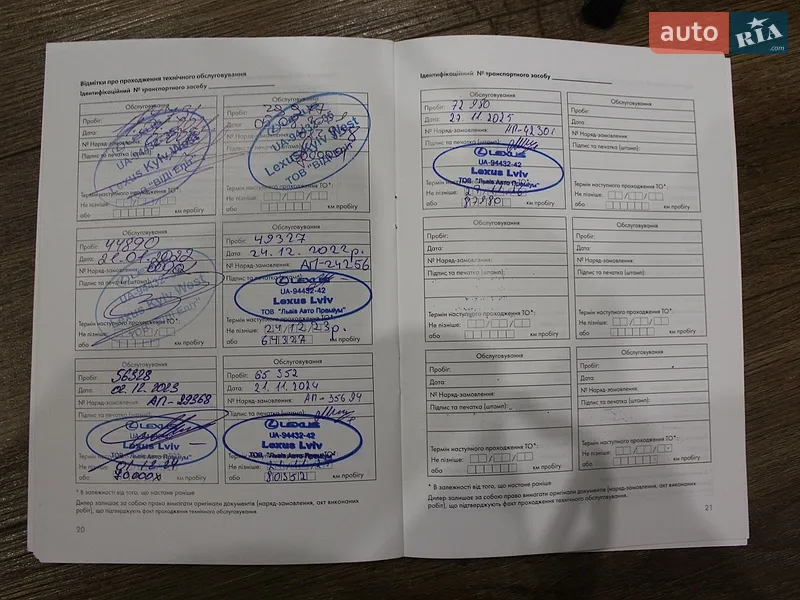 auto RIA .com
Відмітки про проходження технічного обслуговування
Ідентифікаційний № транспортного засобу
Обслуговування
Пробіг:
Дата:
№ Наряд-замовлення:
Підпис та печатка (штамп):
UA-94432
Lexus Kyiv West
Термін наступного проходження ТО*:
Не пізніше:
або км пробігу
Обслуговування
Пробіг:
Дата:
№ Наряд-замовлення:
UA-94432
Lexus Kyiv West
Не пізніше:
або км пробігу
Обслуговування
Пробіг: 44890
Дата: 21.01.2022
№ Наряд-замовлення:
Підпис та печатка (штамп):
Kyiv West
Термін наступного
Не пізніше:
або км пробігу
Обслуговування
Пробіг: 49327
Дата: 24.12.2022р.
№ Наряд-замовлення: АП-24256
Підпис та печатка
LEXUS
UA-94432-42
Lexus Lviv
ТОВ "Львів Авто Преміум"
Не пізніше: 24/12/23р.
або 64327 км пробігу
Обслуговування
Пробіг: 56328
Дата: 02.12.2023
№ Наряд-замовлення: АП-29368
Підпис та печатка (штамп):
LEXUS
UA-94432-42
Lexus Lviv
ТОВ "Львів Авто Преміум"
Не пізніше: 01.12.24
або 70000 км пробігу
Обслуговування
Пробіг: 65 352
Дата: 21.11.2024
№ Наряд-замовлення: АП-35694
Підпис та печатка (штамп):
LEXUS
UA-94432-42
Lexus Lviv
ТОВ "Львів Авто Преміум"
Не пізніше:
або км пробігу
* В залежності від того, що настане раніше
Дилер залишає за собою право вимагати оригінали документів (наряд-замовлення, акт виконаних
робіт), що підтверджують факт проходження технічного обслуговування
20
Ідентифікаційний № транспортного засобу
Обслуговування
Пробіг: 72 980
Дата: 27.11.2025
№ Наряд-замовлення: АП-42301
Підпис та печатка (штамп):
LEXUS
UA-94432-42
Lexus Lviv
ТОВ "Львів Авто Преміум"
Термін
Не пізніше:
або 87980 км пробігу
Обслуговування
Пробіг:
Дата:
№ Наряд-замовлення:
Підпис та печатка (штамп):
Термін наступного проходження ТО*:
Не пізніше:
або км пробігу
Обслуговування
Пробіг:
Дата:
№ Наряд-замовлення:
Підпис та печатка (штамп):
Термін наступного проходження ТО*:
Не пізніше:
або км пробігу
Обслуговування
Пробіг:
Дата:
№ Наряд-замовлення:
Підпис та печатка (штамп):
Термін наступного проходження ТО*:
Не пізніше:
або км пробігу
Обслуговування
Пробіг:
Дата:
№ Наряд-замовлення:
Підпис та печатка (штамп):
Термін наступного проходження ТО*:
Не пізніше:
або км пробігу
Обслуговування
Пробіг:
Дата:
№ Наряд-замовлення:
Підпис та печатка (штамп):
Термін наступного проходження ТО*:
Не пізніше:
або км пробігу
* В залежності від того, що настане раніше
Дилер залишає за собою право вимагати оригінали документів (наряд-замовлення, акт виконаних
робіт), що підтверджують факт проходження технічного обслуговування.
21